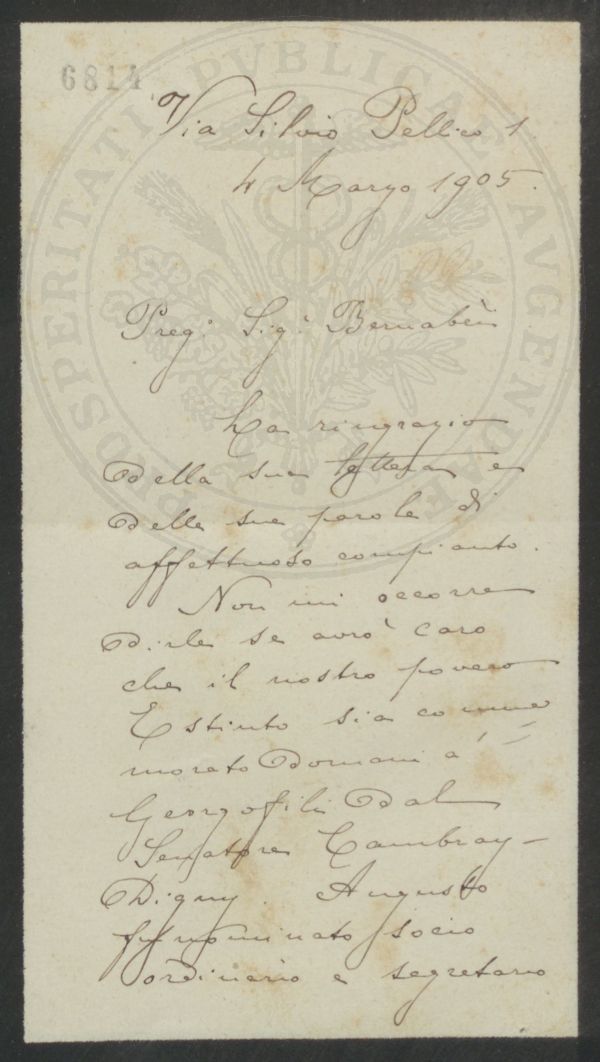 6814
PROSPERITATI PVBLICAE AVGENDAE
Via Silvio Pellico 1.
4 Marzo 1905.
Preg: Sig: Bernabèi
La ringrazio
della sua lettera e
delle sue parole di
affettuoso compianto.
Non mi occorre
dirle se avrò caro
che il nostro povero
Estinto sia comme=
morato domani a'
Georgofili dal
Senatore Cambray-
Digny. Augusto
fu nominato socio
ordinario e segretario